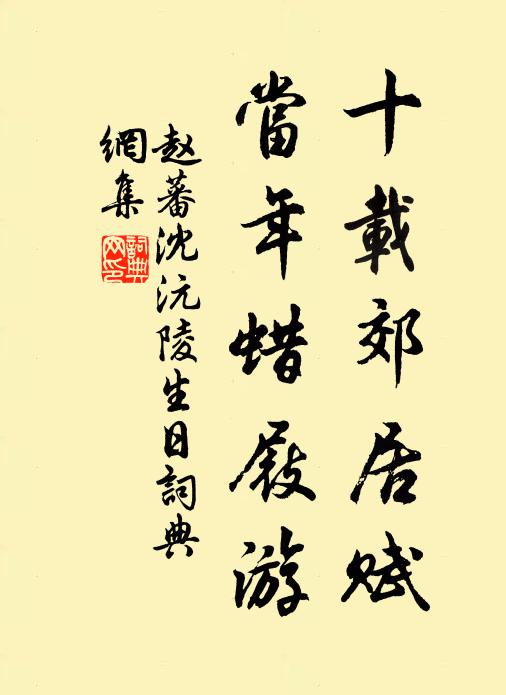 十載郊居賦
當年蜡屐游
赵蕃沈沅陵生日詞典
網集
詞典網印